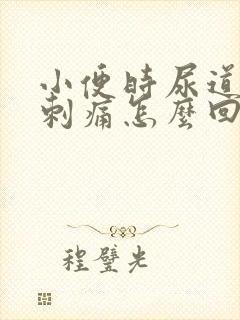 小便時尿道
刺痛怎麼回
程璧光